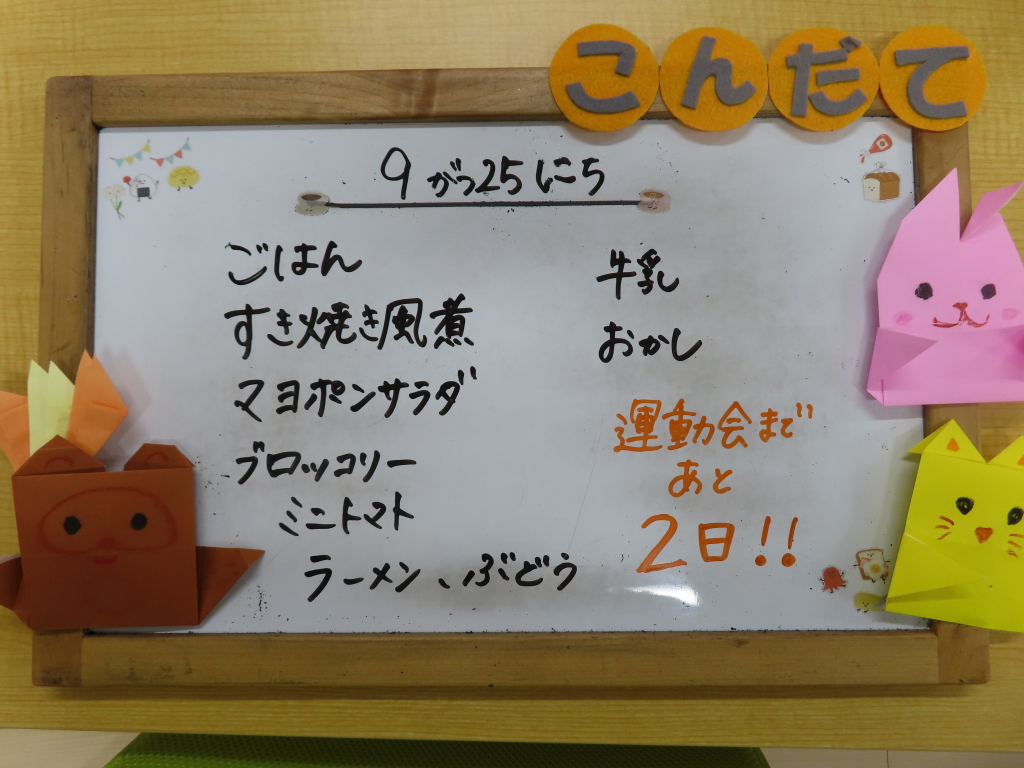 こんだて
9がつ25にち
ごはん
すき焼き風煮
マヨポンサラダ
ブロッコリー
ミニトマト
ラーメン、ぶどう
牛乳
おかし
運動会まで
あと
2日!!